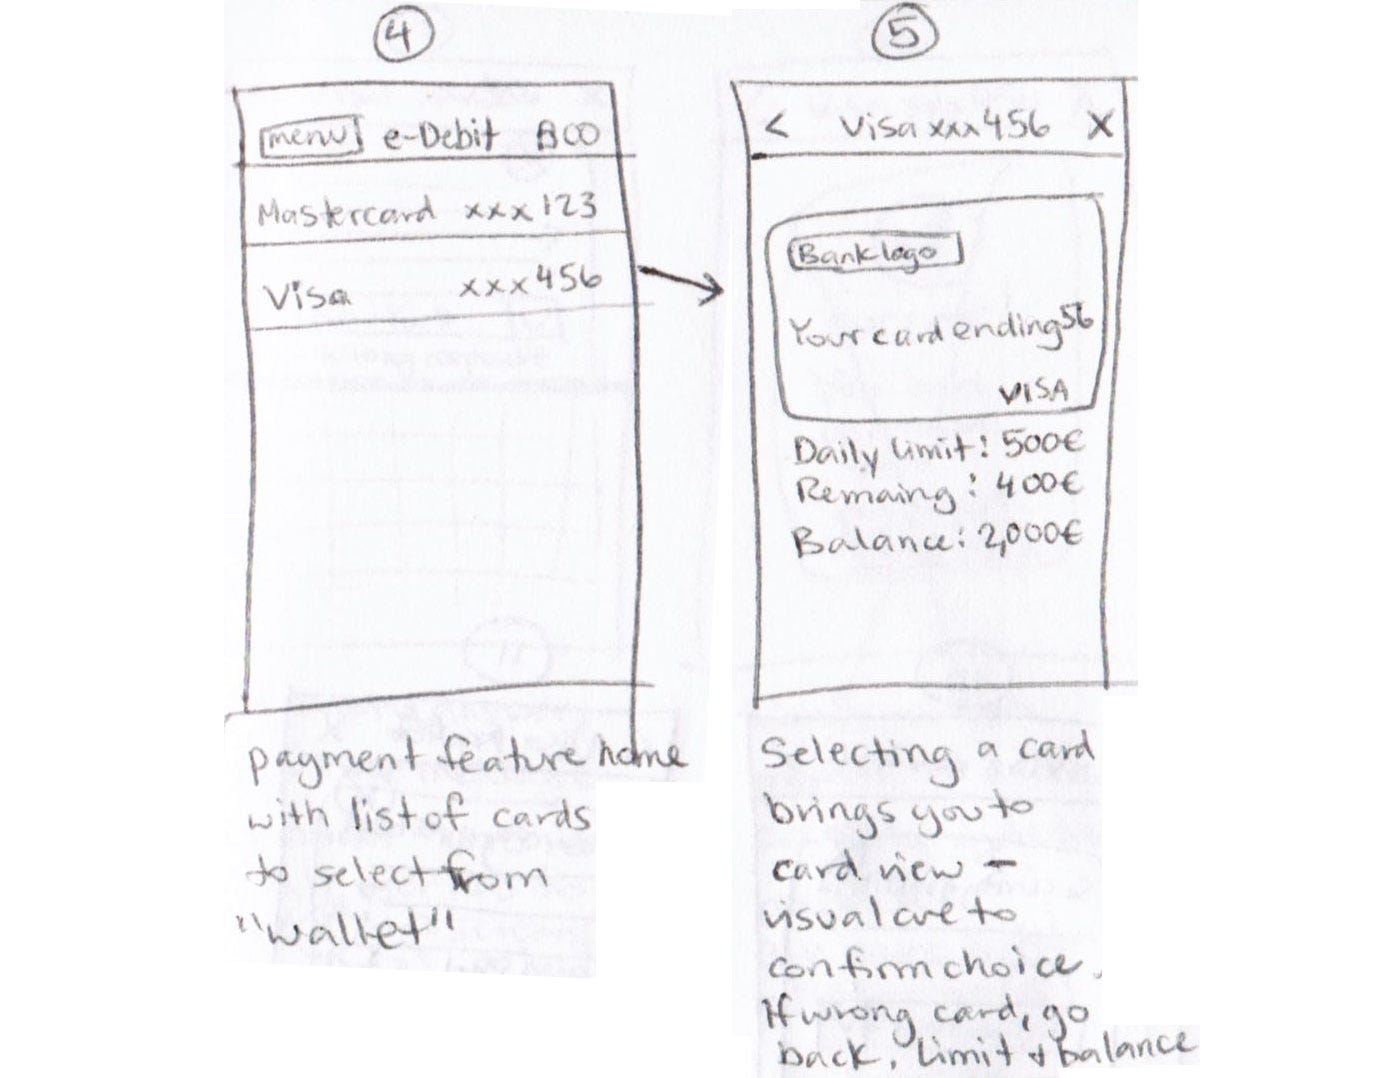 4
menu e-Debit
Mastercard xxx123
Visa xxx456
payment feature home
with list of cards
to select from
"wallet"
5
< Visa xxx456 X
Bank logo
Your card ending 56
VISA
Daily limit: 500€
Remaing: 400€
Balance: 2,000€
Selecting a card
brings you to
card view -
visual cue to
confirm choice.
If wrong card, go
back. Limit & balance